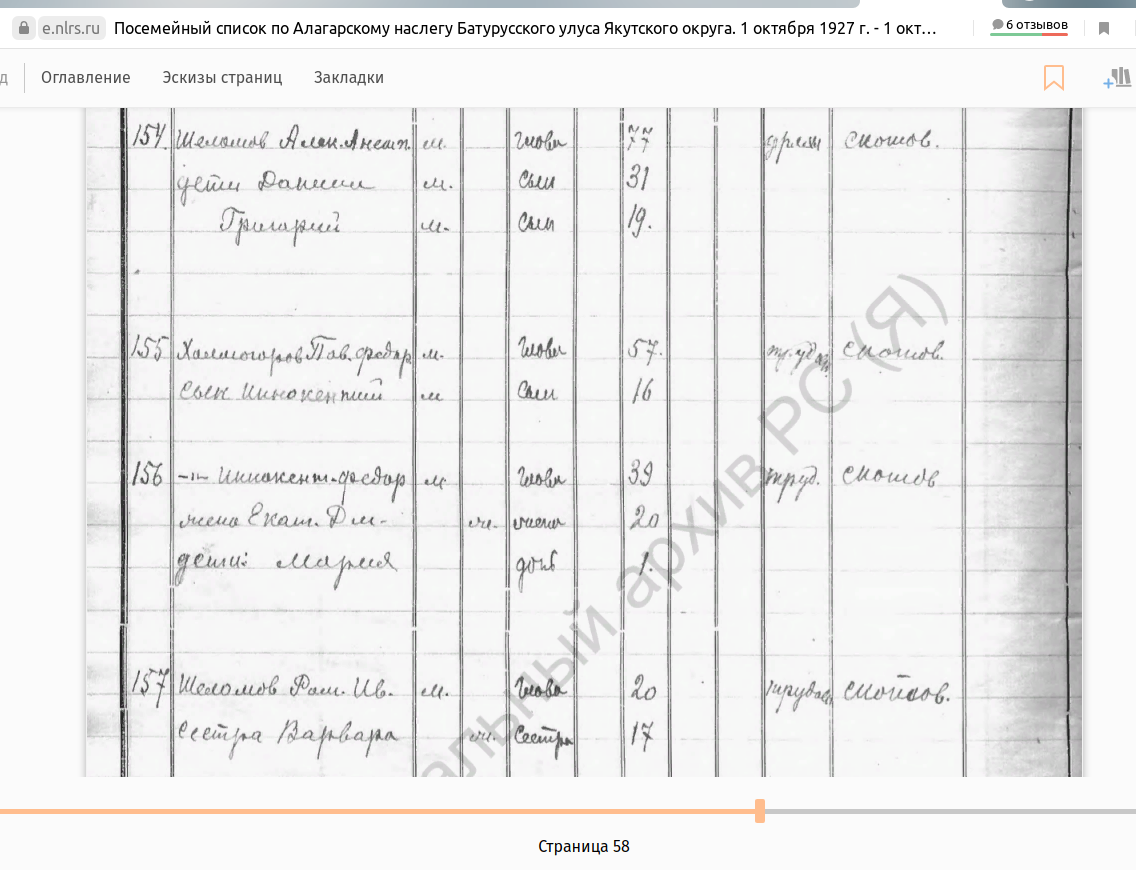 e.nlrs.ru Посемейный список по Алагарскому наслегу Батурусского улуса Якутского округа. 1 октября 1927 г. - 1 окт… 6 отзывов
д Оглавление Эскизы страниц Закладки
154. Шеломов м. Глова 77 скотов.
дети Даниил м. Сын 31
Григорий м. Сын 19.
155 Халмогоров Пав. Федор. м. Глова 57. скотов.
Сын Иннокентий м Сын 16
156 -"- Иннокент. Федор м Глова 39 труд. скотов
жена Екат. Дм. ж. жена 20
дети: Мария дочь 1.
157 Шеломов Ром. Ив. м. Глова 20 скотов.
Сестра Варвара ж. Сестра 17
альный архив РС (Я)
Страница 58